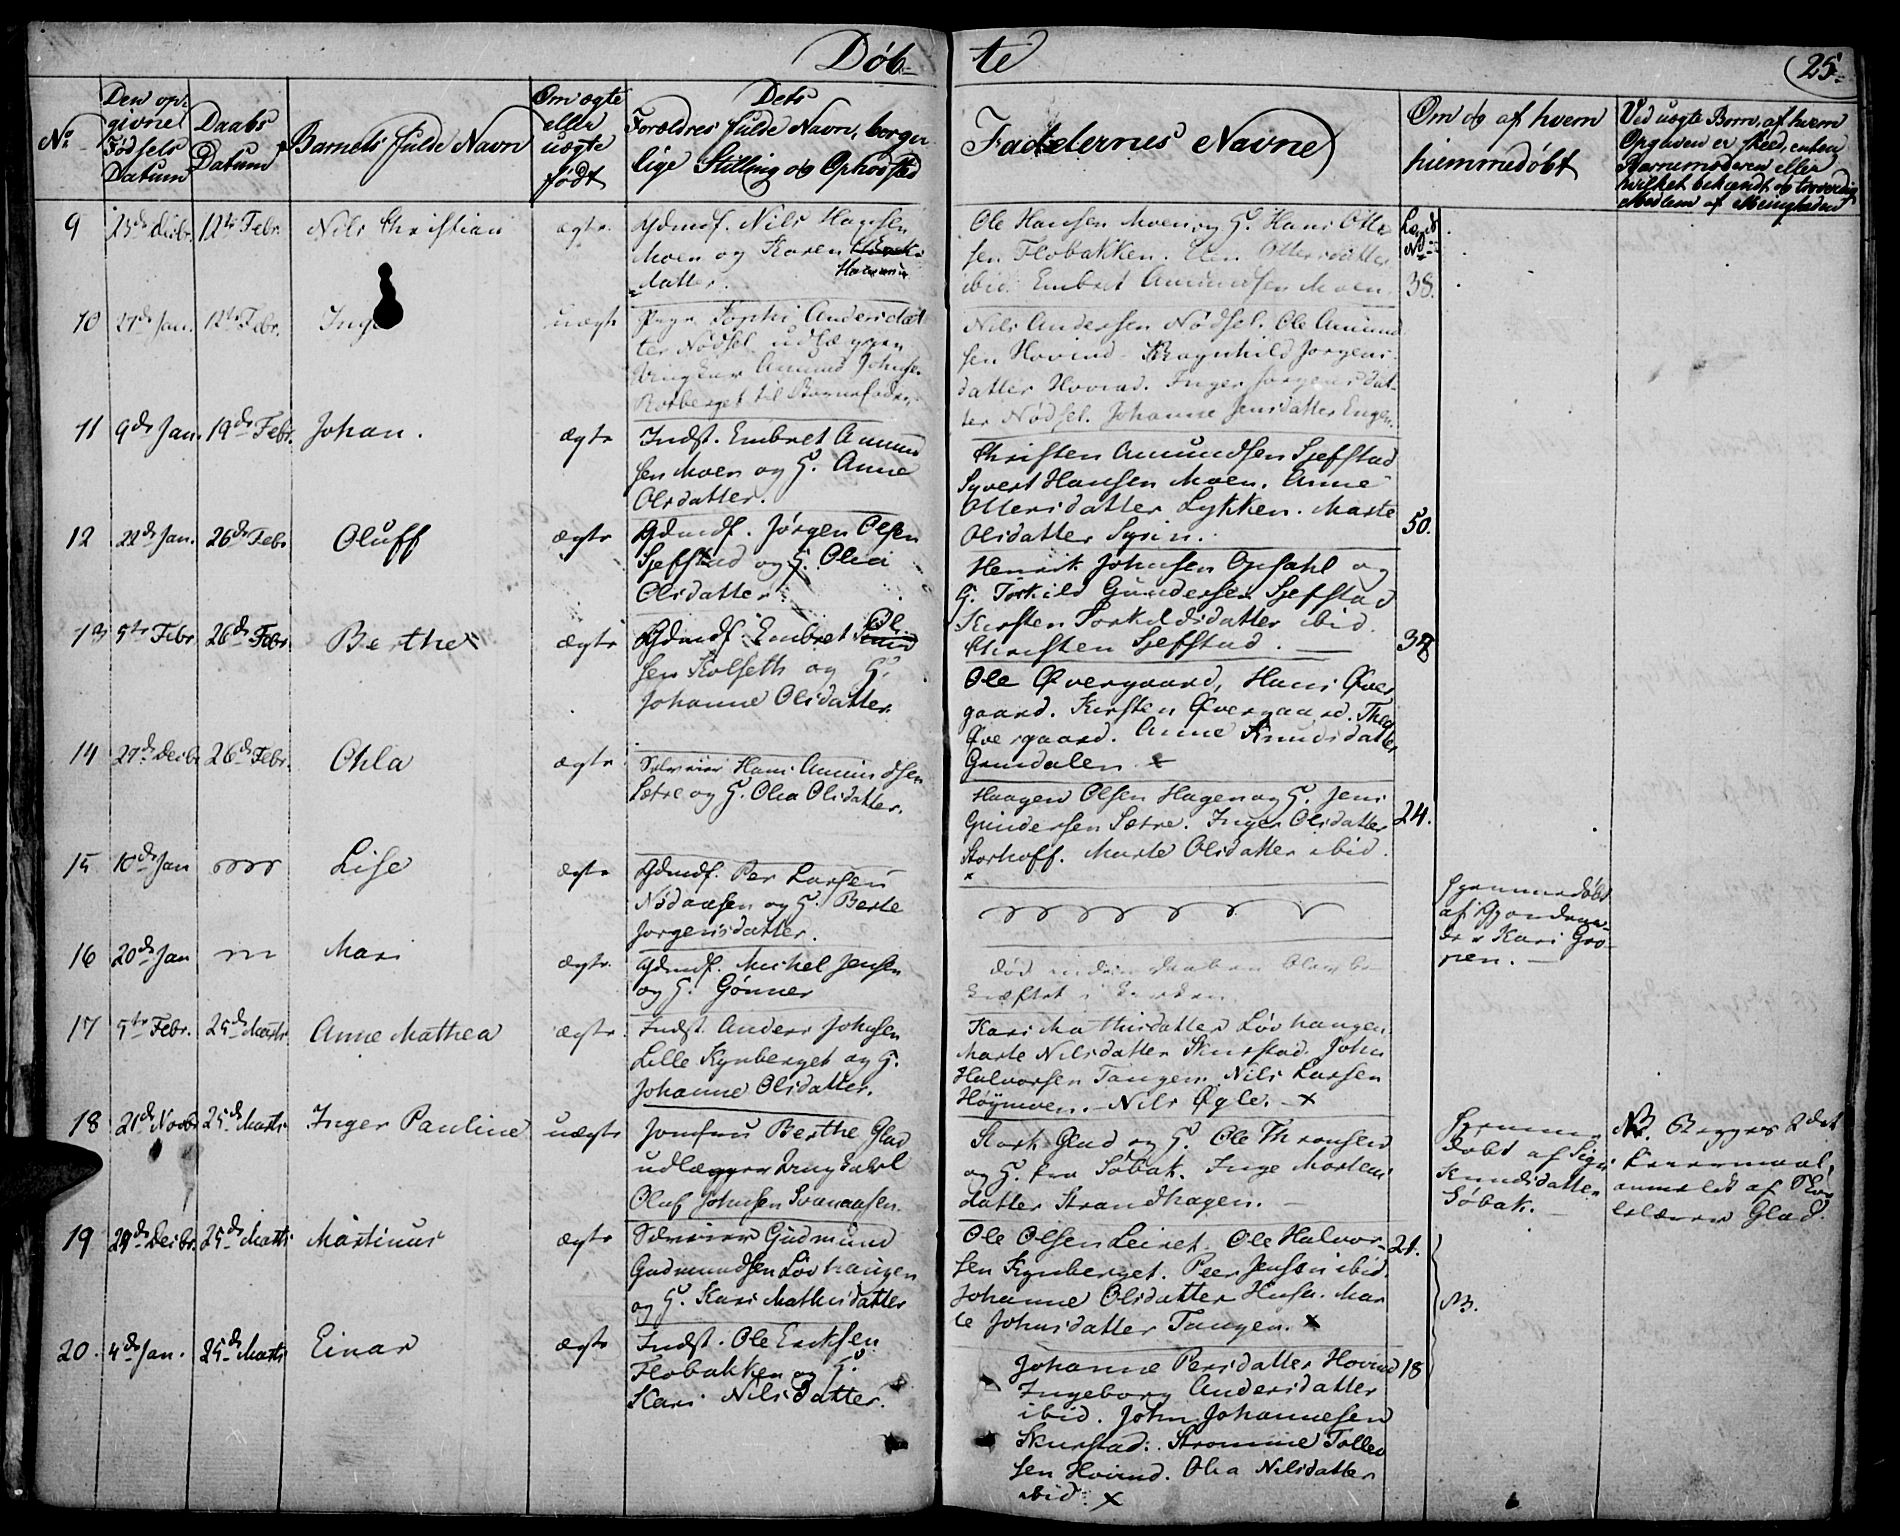 Døb-
te
25
No
Den op-
givne
Fødsels
Datum
Daabs
Datum
Barnets fulde Navn
Om ægte
eller
uægte
født
Dets
Forældres fulde Navn, borger
lige Stilling og Opholdsted
Faddernes Navne
Om og af hvem
hiemmedøbt
Ved uægte Børn, af hvem
Opgaven er skeed, enten
Barnemoderen eller
hvilket bekiendt og troværdig
Medlem af Menigheden
9
12te Febr.
Nils Christian
ægte
Gdmdf. Nils Hansen
Moen og Karen
Hansens
datter.
Ole Hansen Moen og G. Hans Otter
sen Flobakken.
ibid. Embret Amundsen Moen.
38.
10
27de Jan.
12te Febr.
Inge
uægte
Pige Sophi Andersdat
ter Nødsel udlægger
Ungkar Amund Johnsen
Rotberget til Barnefader.
Nils Andersen Nødsel. Ole Amund
sen Hovind. Ragnhild Jørgens
datter Hovind. Inger Jørgensdat
ter Nødsel. Johanne Jensdatter Engen.
11
9de Jan.
19de Febr.
Johan.
ægte
Indst. Embret Amund
sen Moen og G. Anne
Olsdatter.
Christen Amundsen Sjefstad
Syvert Hansen Moen. Anne
Ottersdatter Lykken. Marte
Olsdatter
50.
12
22de Jan.
26de Febr
Oluff
ægte
Gdmdf. Jørgen Olsen
Sjefstad og G. Olia
Olsdatter
Henrik Johnsen Opsahl og
G. Torkild Gundersen Sjefstad
Kirsten Torkildsdatter ibid.
Christen Sjefstad.
38
13
5te Febr
26de Febr.
Berthe
ægte
Gdmdf. Embret Ol
sen Kolseth og G.
Johanne Olsdatter.
Ole Øvergaard, Hans Øver
gaard. Kirsten Øvergaard. Thea
Øvergaard. Anne Knudsdatter
Grundalen. x
14
27de Decbr
26de Febr.
Ohla
ægte
Selveier Hans Amundsen
Sætre og G. Olia Olsdatter.
Haagen Olsen Hagen og G. Jens
Gundersen Sætre. Inger Olsdatter
Storhoff. Marte Olsdatter ibid.
x
24.
15
10de Jan
Lise
ægte
Gdmdf. Per Larsen
Nødaasen og G. Berte
Jørgensdatter.
hjemmedøbt
af Gjordemo-
der Kari Gro-
nen.
16
20de Jan
Mari
ægte
Gdmdf. Michel Jensen
og G. Gønner
død uden Daaben
17
5te Febr.
25de Marts
Anne Mathea
ægte
Indst. Anders Johnsen
Lille Kynberget og G.
Johanne Olsdatter.
Kari Mathisdatter Løvhaugen
Marte Nilsdatter Skurstad. John
Halvorsen Tangen. Nils Larsen
Høymoen. Nils Øgle. x
18
21de Novbr
25de Marts
Inger Pauline
uægte
Jomfru Berthe Glad
udlægger Ungkarl
Oluf Johnsen Svenaasen.
Stork Glad og G. Ole Thronsen
og G. fra Søbak. Inge Mortens
datter Strandhagen.
Hjemme
døbt af Sigri
Knudsdatter
Søbak.
NB. Begges 2det
Leiermaal,
anmeldt af Sko
lelærer Glad.
19
29de Decbr.
25de Marts
Martinus
ægte
Selveier Gudmund
Gudmundsen Løvhaugen
og G. Kari Mathisdatter
Ole Olsen Leiret. Ole Halvor-
sen Kynberget. Peer Jensen ibid.
Johanne Olsdatter Huse. Mar
te Johnsdatter Tangen. x
21.
NB.
20.
4de Jan.
25de Marts
Einar
ægte
Indst. Ole Ericksen
Flobakken og G.
Kari Nilsdatter.
Johanne Persdatter Hovind
Ingeborg Andersdatter
ibid. John Johannesen
Skurstad. Strømme Tollef
sen Hovind. Olia Nilsdatter
ibid. x
18